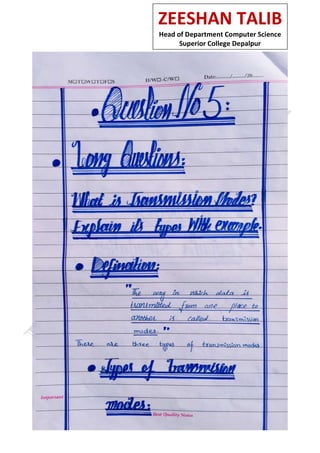 ZEESHAN TALIB
Head of Department Computer Science
Superior College Depalpur
M□T□W□T□F□S H/W□-C/W□ Date:......./......./20.......
• Question No 5:
• Long Questions:
What is Transmission Modes?
Explain its types With example.
• Defination:
"The way in which data is
transmitted from one place to
another is called transmission
modes."
There are three types of transmission modes
• Types of Transmission
modes:
Important
Best Quality Notes